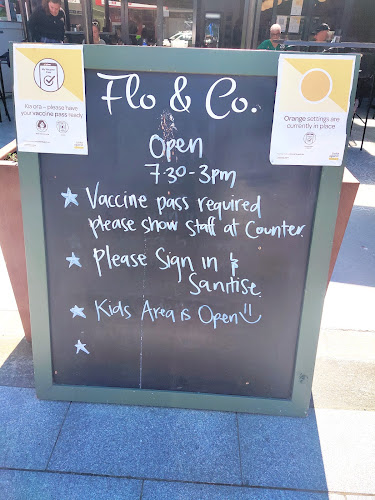 Kia ora – please have
your vaccine pass ready
Orange settings are
currently in place
Flo & Co.
Open
7·30 - 3pm
Vaccine pass required
please show staff at Counter.
Please Sign in &
Sanitise.
Kids Area is Open